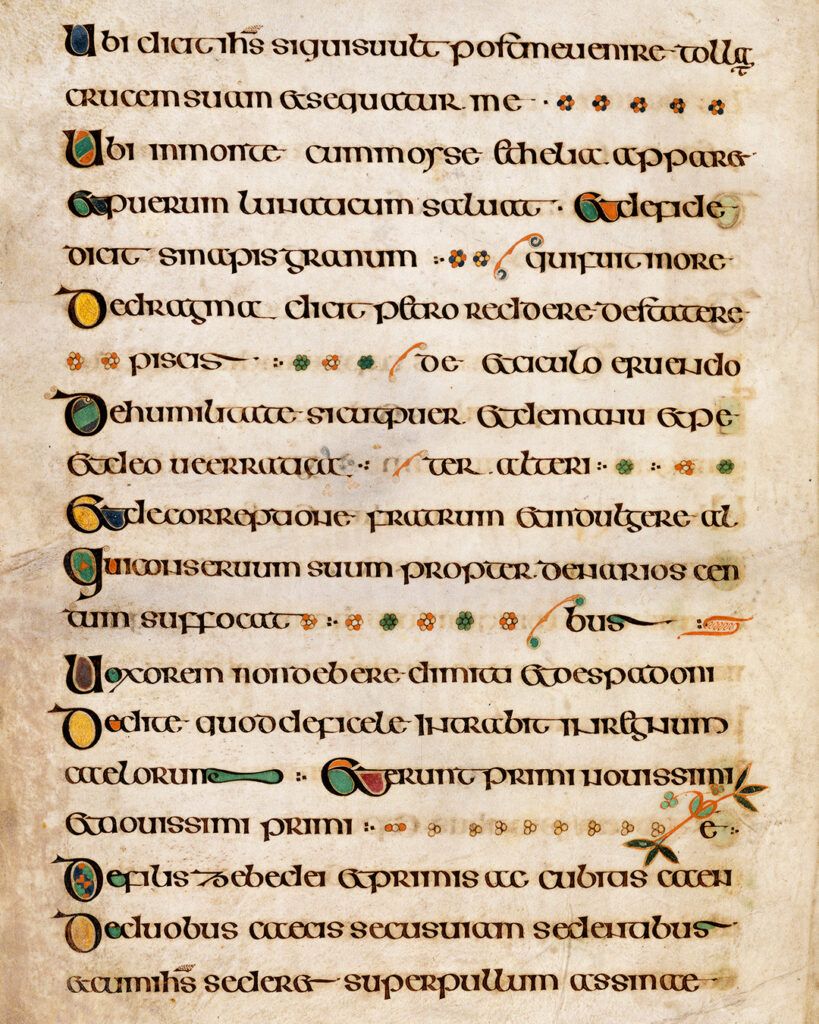 Ubi dicit ihs siquisuult postmeuenire tollat
crucem suam etsequatur me
Ubi inmonte cummoyse ethelia apparet
Etpuerum lunaticum saluat · Etdefide
dicit sinapis granum quifuit more
Dedragma dicit petro reddere destatere
piscis de etoculo eruendo
Dehumilitate sicutpuer etdemanu etpe
etdeo ueerratica ter alteri
Etdecorreptione fratrum etindulgere al
Quiconseruum suum propter denarios cen
tum suffocat bus
Uxorem nondebere dimitti etdespadoni
Dedite quoddeficele intrabit inregnum
caelorum Eterunt primi nouissimi
etnouissimi primi e
Defilis zebedei etprimis ac cubitis caen
Deduobus caecis secusuiam sedentibus
etcumihs sederet superpullum assinae